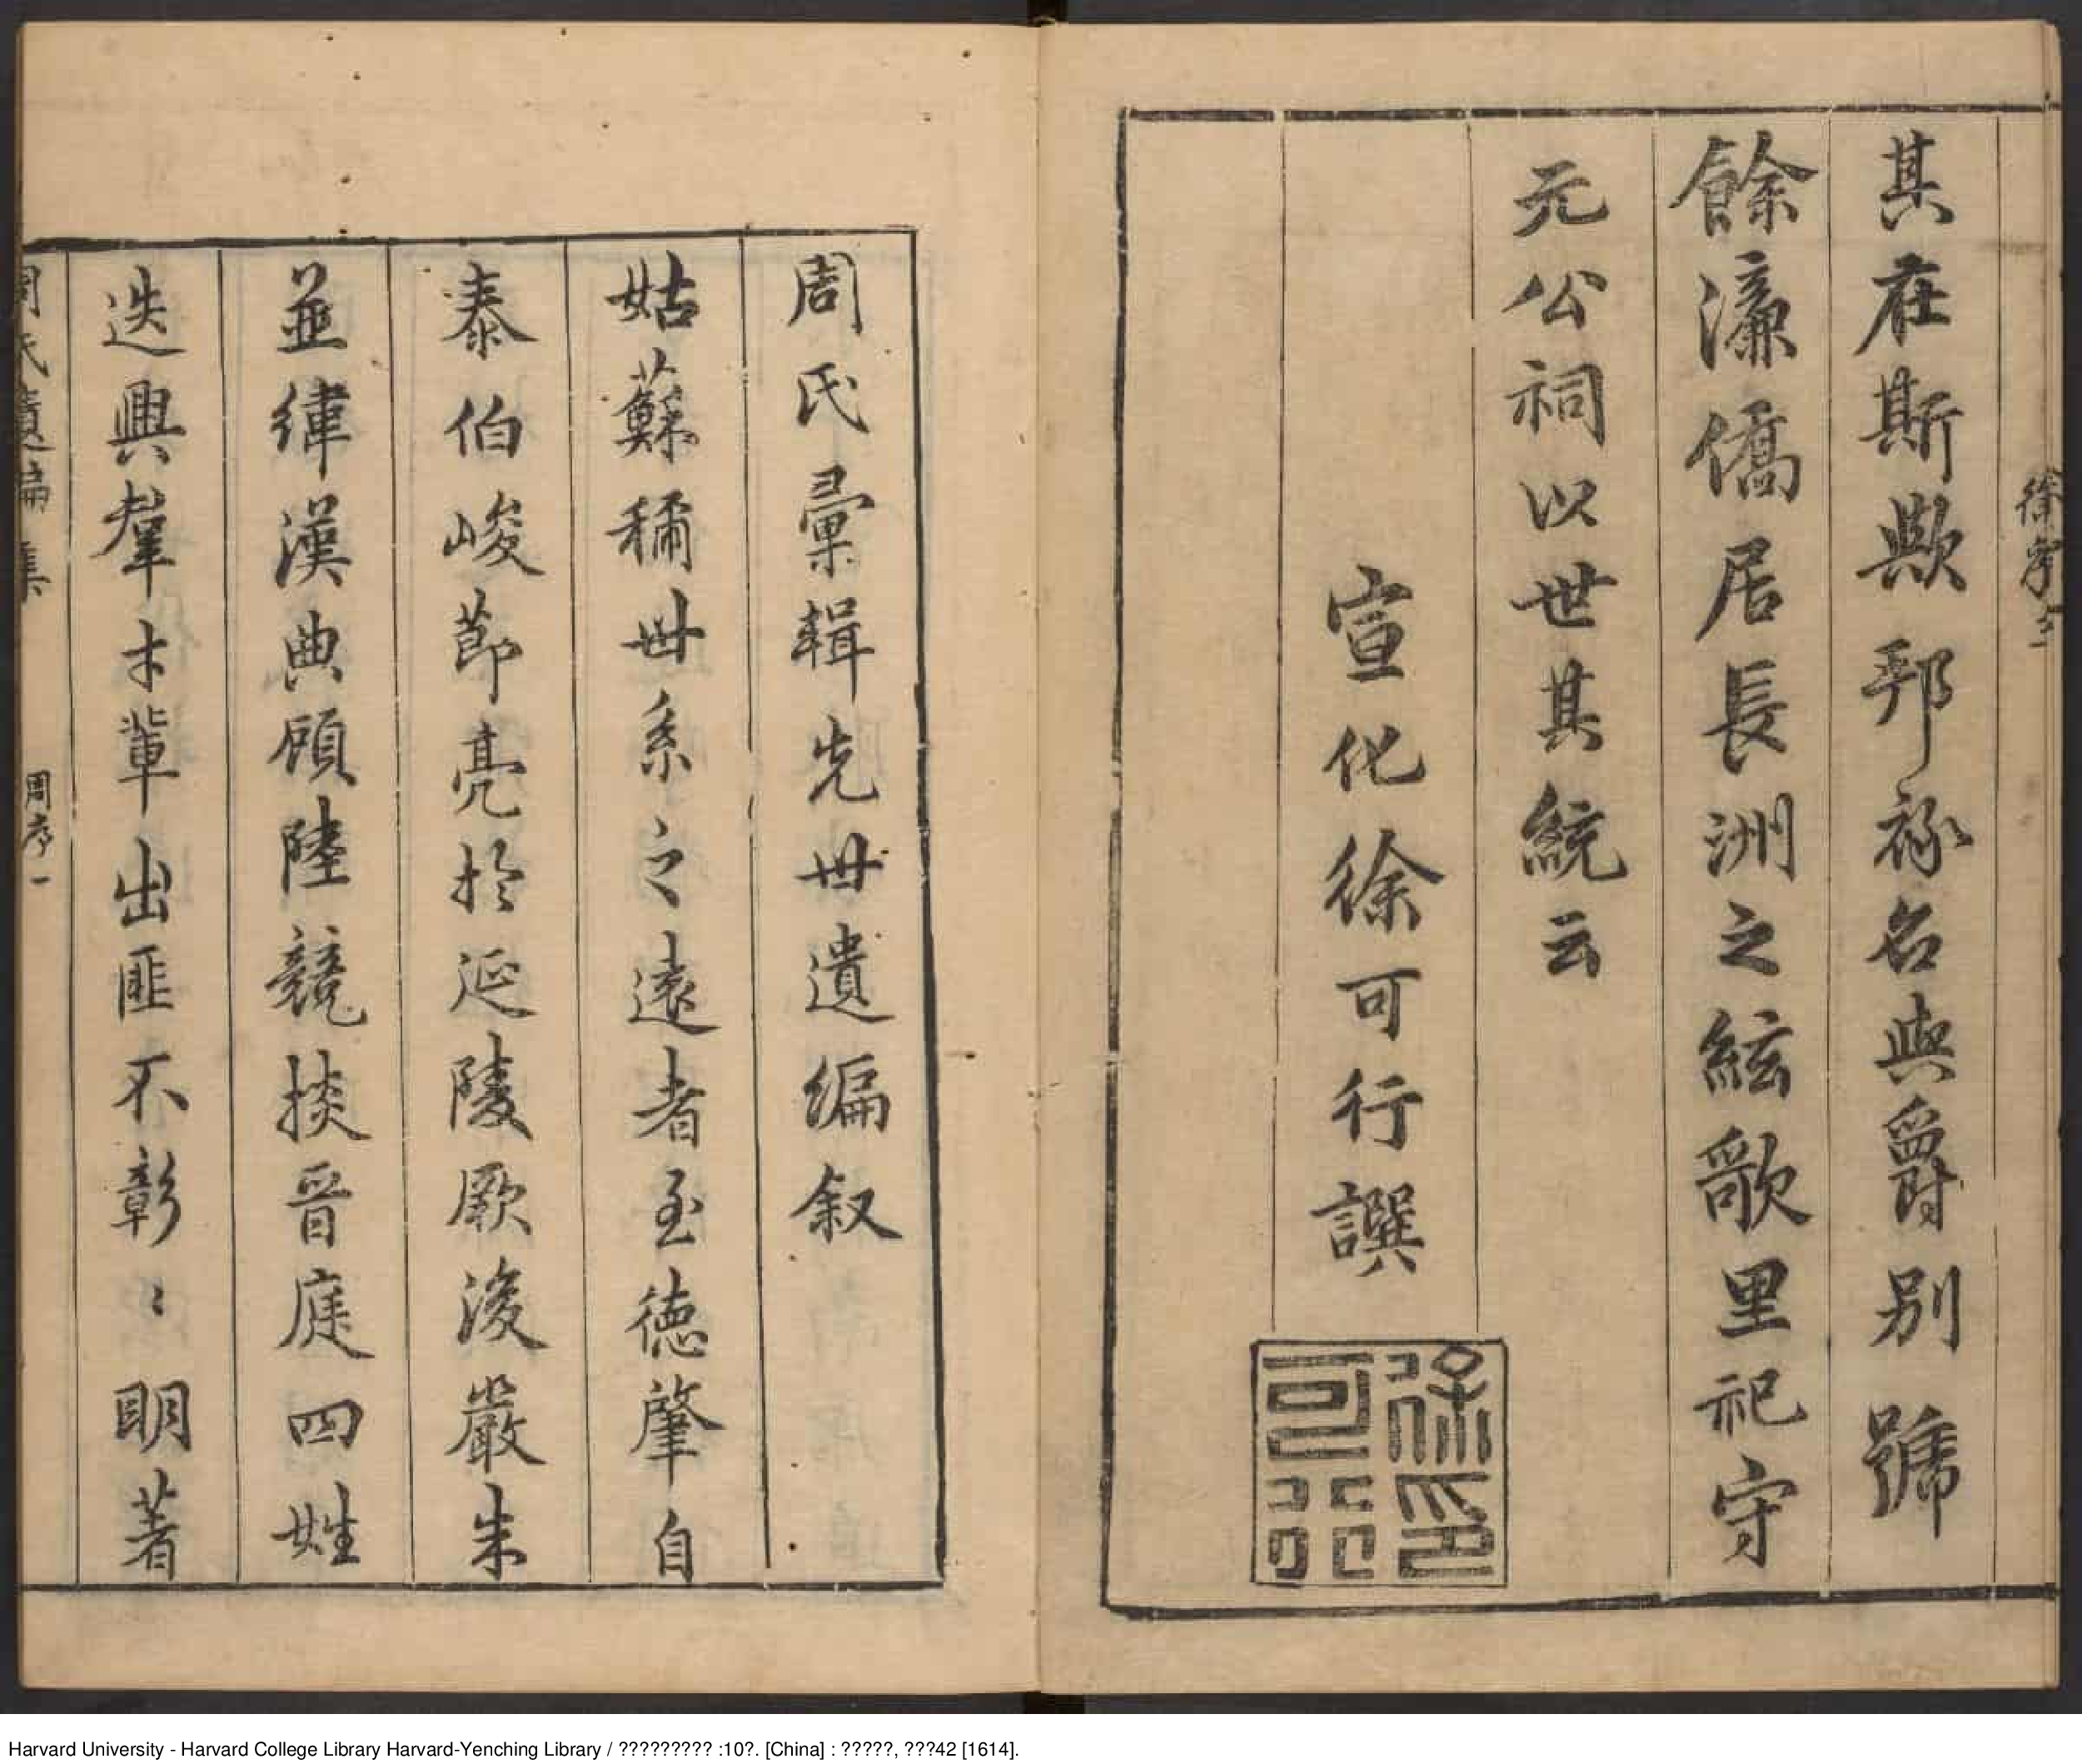 徐序
其在斯歟邦祢名與爵別號
餘濂僑居長洲之絃歌里祀守
元公祠以世其統云
宣化徐可行譔
徐可行印
周氏彙輯先世遺編叙
姑蘇稱世系之遠者至德肇自
泰伯峻節亮於延陵厥後嚴朱
並繂漢典顧陸競掞晉庭四姓
迭興羣才輩出匪不彰〻明著
周氏遺編集 周序一
Harvard University - Harvard College Library Harvard-Yenching Library / ????????? :10?. [China] : ?????, ???42 [1614].